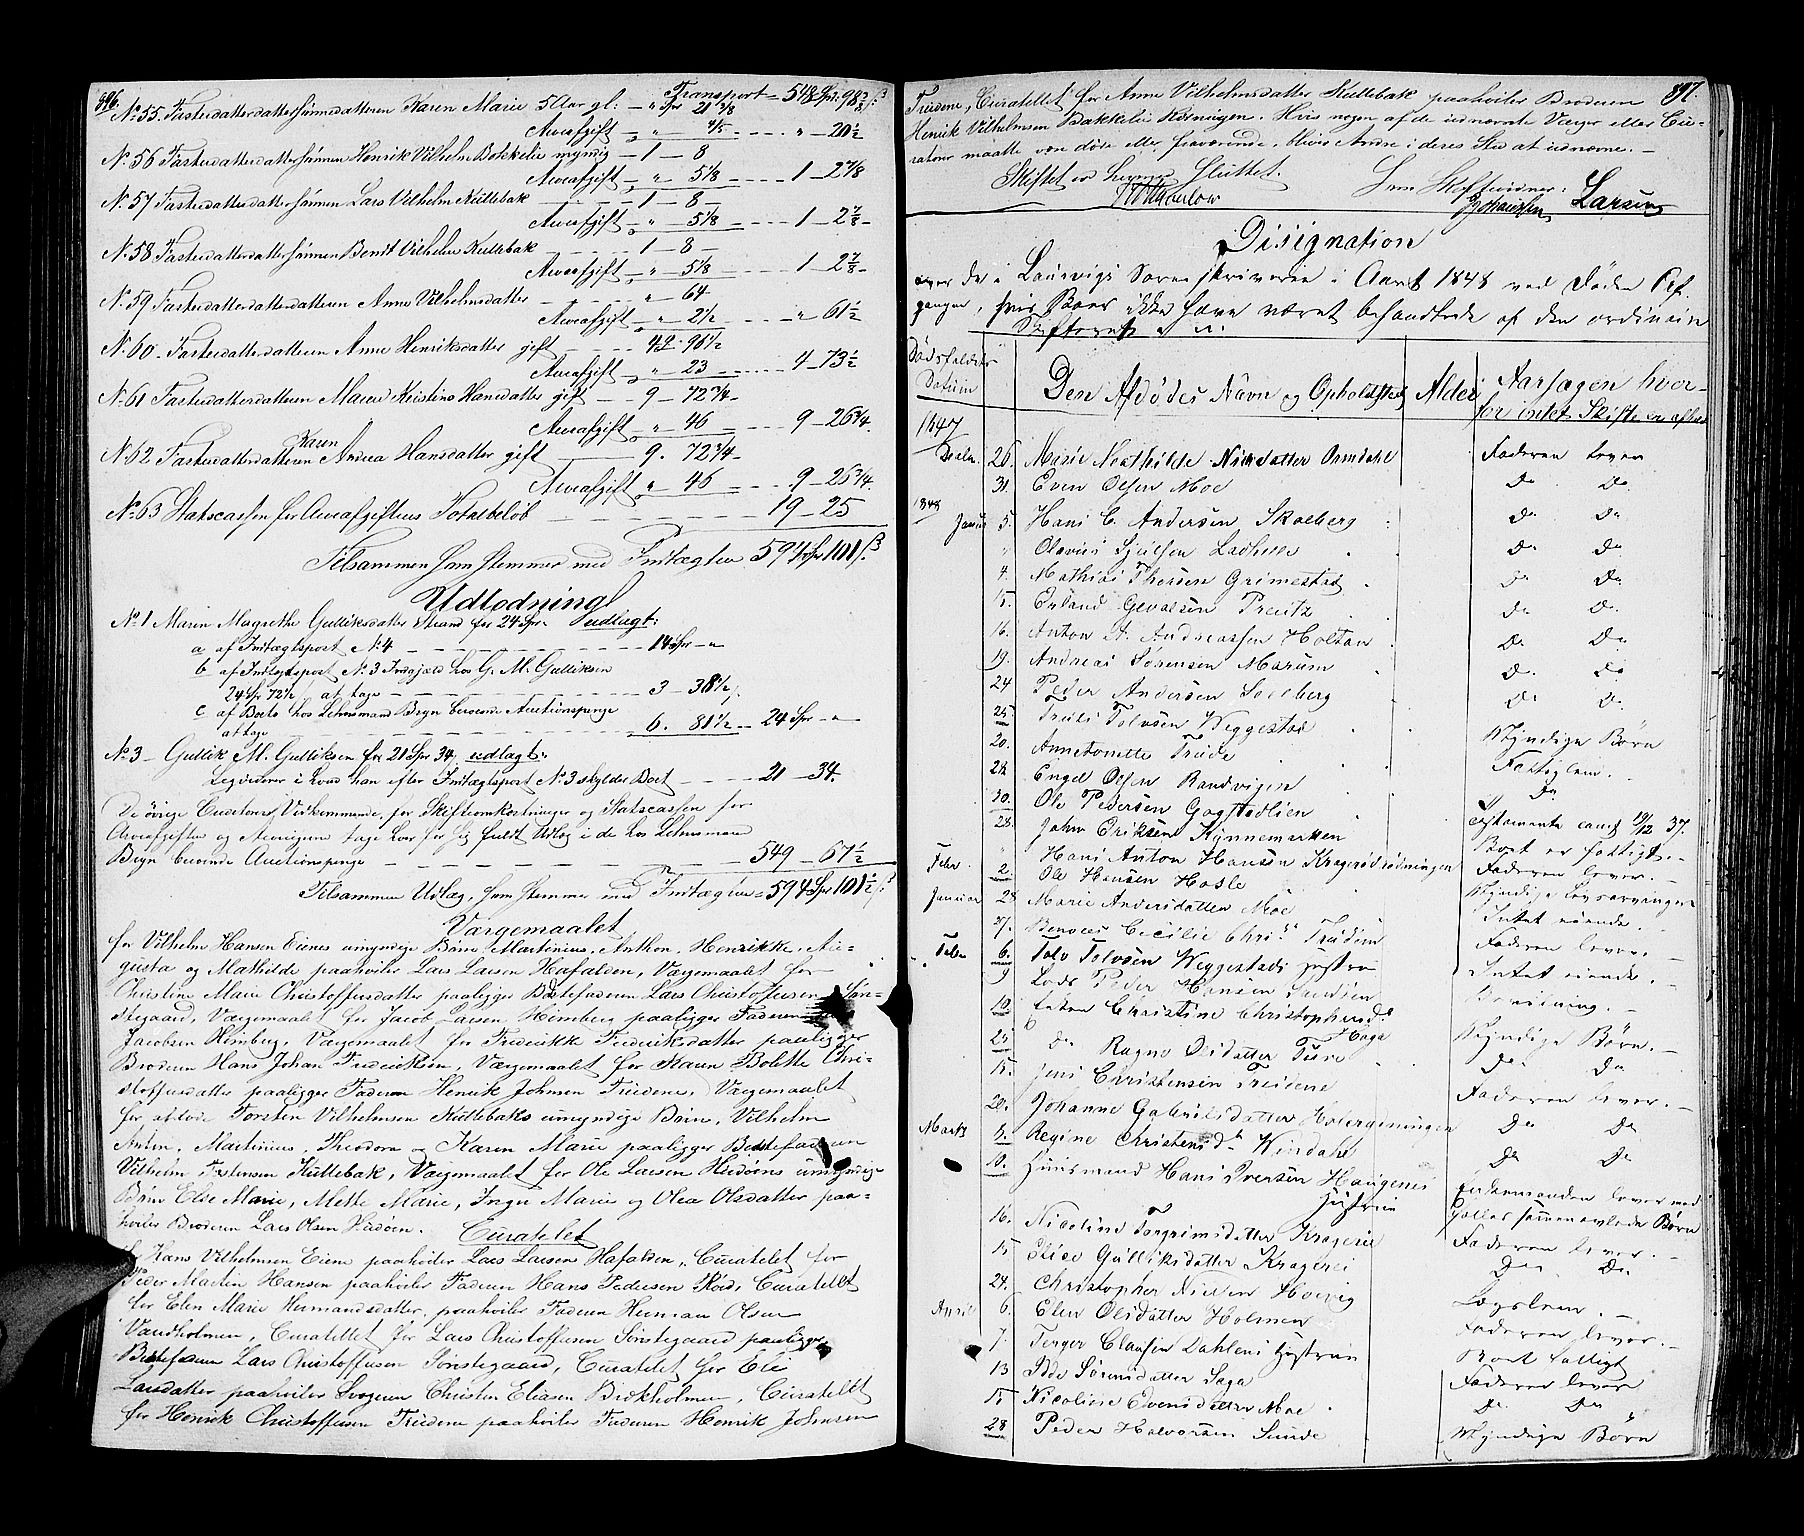 896.
Transport = 548 Spd. 98 3/8 ß
No 55. Fasterdatterdattersønnedatteren Karen Marie 5 Aar gl: - " Spr 21 3/8
Arveafgift - " - 4/5 - - - - " - 20 1/2
No 56 Fasterdatterdattersønnen Henrik Vilhelm Bakkelie myndig - 1 - 8
Arveafgift - " - 5 1/8 - - - 1 - 2 7/8
No. 57 Fasterdatterdattersønnen Lars Vilhelm Kullebak - 1 - 8 -
Arveafgift - " - 5 1/8 - - - 1 - 2 7/8 -
No. 58 Fasterdatterdattersønnen Bendt Vilhelm Kullebak - - - 1 - 8 -
Arveafgift - " - 5 1/8 - - - 1 - 2 7/8 -
No. 59 Fasterdatterdatterdatteren Anne Vilhelmsdatter - - - " - 64
Arveafgift " - 2 1/2 - - - " - 61 1/2
No. 60 - Fasterdatterdatteren Anne Henriksdatter gift - - - 4 - 96 1/2
Arveafgift " - 23 - - - 4 - 73 1/2
No. 61 Fasterdatterdatteren Maren Kristine Hansdatter gift - - 9 - 72 3/4 -
Arveafgift " - 46 9 - 26 3/4.
No. 62 Fasterdatterdatteren Karen Andrea Hansdatter gift - 9. 72 3/4 -
Arveafgift " - 46 - - - 9 - 26 3/4.
No. 63 Statscassen for Arveafgiftens Totalbeløb - - - - 19 - 25
Tilsammen som stemmer med Indtægten 594 Spr 101 ß
Udlodning
No. 1 Maren Magrethe Gulliksdatter Strand for 24 Spr. udlagt:
a af Indtægtspost No 4 - - - - - 14 Spr - "
b af Indtægtspost No. 3 Indgjæld hos G. M. Gulliksen
24 Spr 72 1/2 at tage - - - - - 3 - 38 1/2
c af Boets hos Lehnsmand Bryn beroende Auctionspenge
at tage - - - - - 6. 81 1/2 - 24 Spr - "
No. 3 - Gullik M. Gulliksen for 21 Spr 34, udlagt:
Legiverer i hvad han efter Indtægtspost No 3 skylder Boet - - - - 21 - 34.
De øvrige Creditorer, Vedkommende for Skifteomkostninger og Statscassen for
Arveafgiften og Arvingerne tage hver for sig fuldt Udlæg i de hos Lehnsmand
Bryn beroende Auctionspenge - - - - - 549 - 67 1/2
Tilsammen Udlæg, som stemmer med Indtægten = 594 Spr 101 1/2 ß
Værgemaalet
for Vilhelm Hansen Eienes umyndige Børn Martinius, Anthon, Henrikke, Au=
gusta og Mathilde paahviler Lars Larsen Hafalden, Værgemaalet for
Christine Marie Christoffersdatter paaligger Bedstefaderen Lars Christoffersen Søn=
stegaard, Værgemaalet for Jacob Larsen Himberg paaligger Faderen
Jacobsen Himberg, Værgemaalet for Frederikke Frederiksdatter paaligger
Broderen Hans Johan Frederiksen, Værgemaalet for Karen Bolette Chri=
stoffersdatter paaligger Faderen Henrik Johnsen Truedene, Værgemaalet
for afdøde Torsten Vilhelmsen Kullebaks umyndige Børn, Vilhelm
Anton, Martinius, Theodora og Karen Marie paaligger Bedstefaderen
Vilhelm Torstensen Kullebak, Værgemaalet for Ole Larsen Hudøens umyndige
Børn Else Marie, Mette Marie, Inger Marie og Olea Olsdatter paa=
hviler Broderen Lars Olsen Hudøen.
Curatelet
for Hans Vilhelmsen Eiene paahviler Lars Larsen Hafalden, Curatelet for
Peder Martin Hansen paahviler Faderen Hans Pedersen Røed, Curatelet
for Elen Marie Hermandsdatter, paahviler Faderen Herman Olsen
Vandholmen, Curatellet for Lars Christoffersen Sønstegaard paaligger
Bedstefaderen Lars Christoffersen Sønstegaard, Curatelet for Elei
Larsdatter paahviler Svogeren Christen Eliasen Brokholmen, Curatelet
for Henrik Christoffersen Truedene paahviler Faderen Henrik Johnsen
897.
Truedene, Curatellet for Anne Vilhelmsdatter Kullebak paahviler Broderen
Henrik Vilhelmsen Bakkelie Rösningen. Hvis nogen af de udnævnte Værger eller Cu=
ratorer maatte være døde eller fraværende, blive Andre i deres Sted at udnævne. -
Skiftet er hermed Sluttet.
Som Skifteridner:
Johanssen Larsen
Designation
over de i Laurvigs Sorenskriverie i Aaret 1848 ved Døden Af-
gangne, hvis Boer ikke have været behandlede af den ordinaire
Skifteret
Dødsfaldets Datum
Den Afdødes Navn og Opholdssted
Alder
Aarsagen hvor-
for intet Skifte er afholdt
1847
Decbr. 26. Marie Mathilde Nilsdatter Omdahl Faderen lever
31. Even Olsen Moe Do Do
1848
Januar 5. Hans C. Andersen Skaeberg Do Do
" Olavus Do Do
4. Mathias Thorsen Grimestad Do Do
15. Erland Preutz Do Do
16. Anton A. Andreassen Holtan Do Do
19. Andreas Sørensen Marum Do Do
24 Peder Andersen Solberg Do Do
25. Truls Tolvsen Weggestad Myndige Børn
20. Annetonette Trude Fattiglem. -
24 Engel Olsen Randvigen Do
30. Ole Pedersen Gogstadlien Testamente conf. 19/12 37.
28. John Eriksen Rønnemarken Boet er fattigt. -
" Hans Anton Hansen Kragerødrødningen Faderen lever. -
Febr. 2. Ole Hansen Hasle Myndige Livsarvinger
Januar 28 Marie Andersdatter Moe Intet eiende. -
27. Cecilie Chrisdr Truden Faderen lever. -
Febr. 6. Tolv Tolvsen Weggestads Hustrue Intet eiende. -
9 Lods Peder Hansen Bevilning. -
12. Enken Christine Christophersdr Haga Myndige Børn. -
25 Do Ragne Olsdatter Do Do
15. Jens Christensen Treidene Faderen lever. -
20. Johanne Gabrielsdatter Do Do
Marts 5. Regine Christensdr Windahl Do Do
10. Huusmand Hans Iversen Haugenes Hustrue Enkemanden lever med
Fælles sammenavlede Børn
16. Nicoline Torgrimsdatter Krageröe Faderen lever. -
15 Gulliksdatter Kragerøe Do Do
24. Christopher Nilsen Hovig Lægslem. -
April 6. Elen Olsdatter Holmen Faderen lever. -
7. Torger Clausen Dahlens Hustrue Boet fattigt
13 Ida Sørensdatter Haga Faderen lever
15 Nicoline Evensdatter Moe Do Do
28 Peder Halvorsen Sunde Myndige Børn